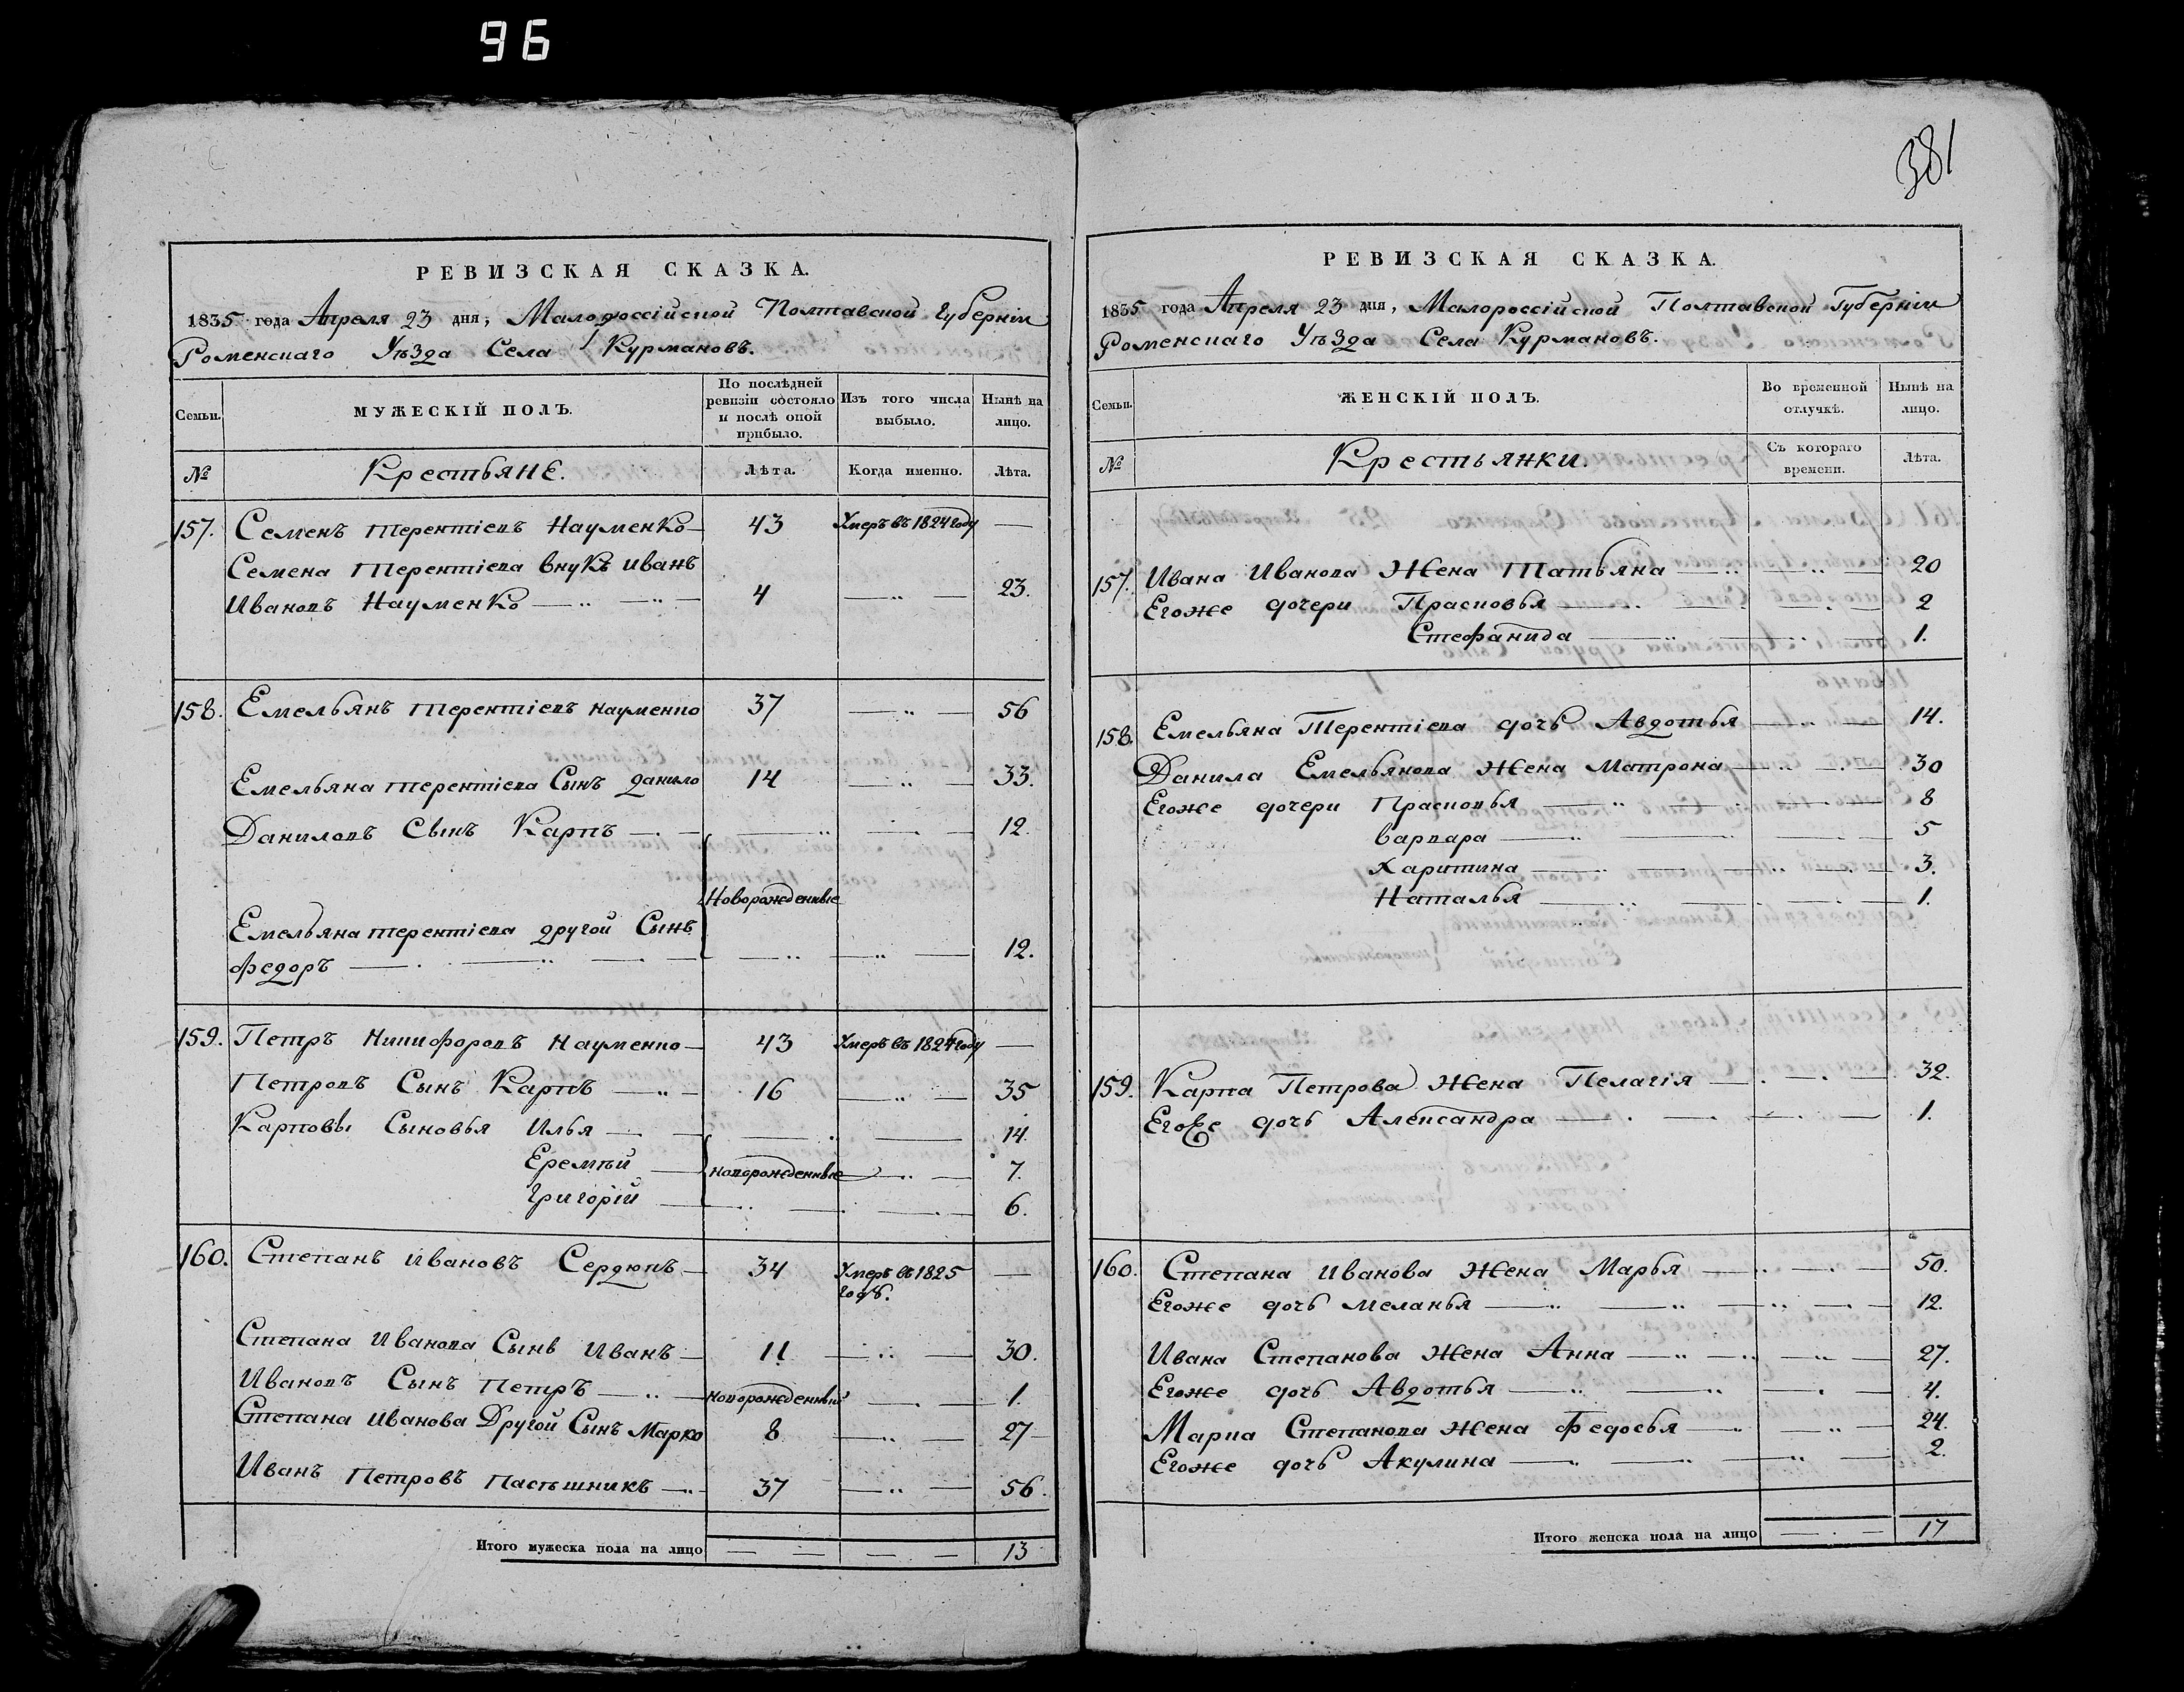 96
РЕВИЗСКАЯ СКАЗКА.
1835 года Апреля 23 дня, Малороссійской Полтавской Губерніи
Роменскаго Уѣзда Села Курмановъ.
Семьи.
МУЖЕСКІЙ ПОЛЪ.
По послѣдней ревизіи состояло и послѣ оной прибыло.
Изъ того числа выбыло.
Нынѣ на лицо.
№ Крестьяне. Лѣта. Когда именно. Лѣта.
157. Семенъ Терентіевъ Науменко 43 Умеръ въ 1824 году —
Семена Терентіева внукъ Иванъ
Ивановъ Науменко 4 — 23.
158. Емельянъ Терентіевъ Науменко 37 — 56
Емельяна Терентіева Сынъ Данило 14 — 33.
Даниловъ Сынъ Карпъ — — 12.
Новорожденные
Емельяна Терентіева другой Сынъ
Федоръ — — 12.
159. Петръ Никифоровъ Науменко 43 Умеръ въ 1824 году —
Петровъ Сынъ Карпъ 16 — 35
Карповы Сыновья Илья — — 14.
Еремѣй новорожденные — 7.
Григорій — — 6.
160. Степанъ Ивановъ Сердюкъ 34 Умеръ въ 1825 —
годѣ.
Степана Иванова Сынъ Иванъ 11 — 30.
Ивановъ Сынъ Петръ новорожденный — 1.
Степана Иванова Другой Сынъ Марко 8 — 27
Иванъ Петровъ Пасѣшникъ 37 — 56.
Итого мужеска пола на лицо — — 13
381
РЕВИЗСКАЯ СКАЗКА.
1835 года Апреля 23 дня, Малороссійской Полтавской Губерніи
Роменскаго Уѣзда Села Курмановъ.
Семьи.
ЖЕНСКІЙ ПОЛЪ.
Во временной отлучкѣ.
Нынѣ на лицо.
№ Крестьянки. Съ котораго времени. Лѣта.
157. Ивана Иванова Жена Татьяна — 20
Егоже дочери Прасковья — 2
Стефанида — 1.
158. Емельяна Терентіева дочь Авдотья — 14.
Данила Емельянова Жена Матрона — 30
Егоже дочери Прасковья — 8
Варвара — 5
Харитина — 3.
Наталья — 1.
159. Карпа Петрова Жена Пелагія — 32.
Егоже дочь Александра — 1.
160. Степана Иванова Жена Марья — 50.
Егоже дочь Меланья — 12.
Ивана Степанова Жена Анна — 27.
Егоже дочь Авдотья — 4.
Марка Степанова Жена Федосья — 24.
Егоже дочь Акулина — 2.
Итого женска пола на лицо — 17